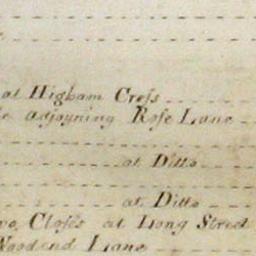 at Higham Croſs
adjoyning Roſe Lane
at Ditto
at Ditto
Cloſes at Long Street
Woodend Lane